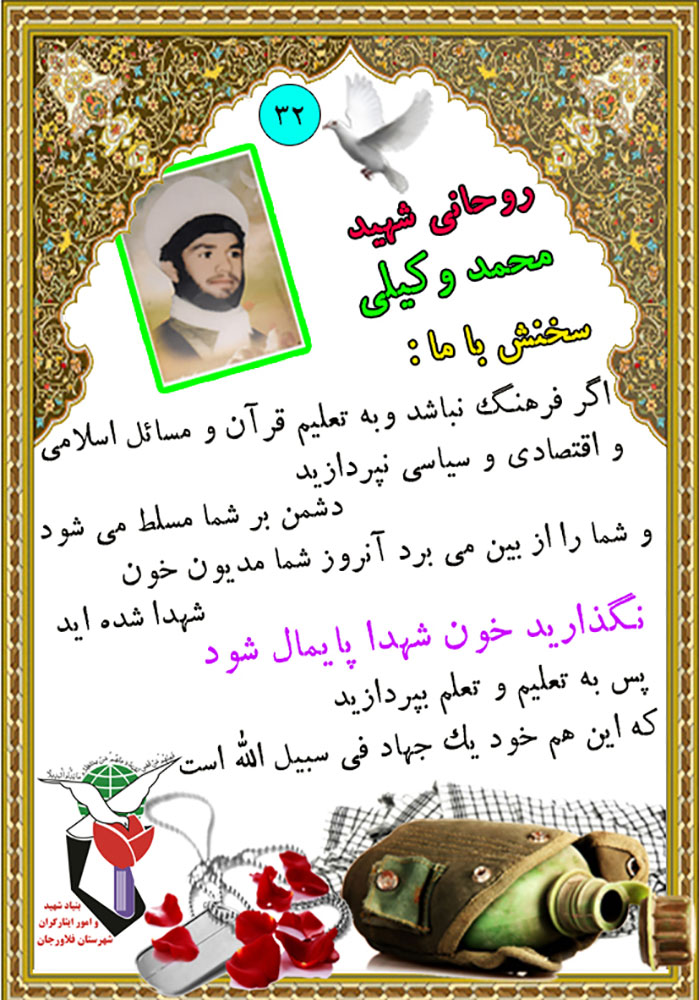 ۳۲
روحانی شهید
محمد وکیلی
سخنش با ما :
اگر فرهنگ نباشد وبه تعلیم قرآن و مسائل اسلامی
و اقتصادی و سیاسی نپردازید
دشمن بر شما مسلط می شود
و شما را از بین می برد آنروز شما مدیون خون
شهدا شده اید
نگذارید خون شهدا پایمال شود
پس به تعلیم و تعلم بپردازید
که این هم خود یك جهاد فی سبیل الله است
بنیاد شهید
و امور ایثارگران
شهرستان فلاورجان